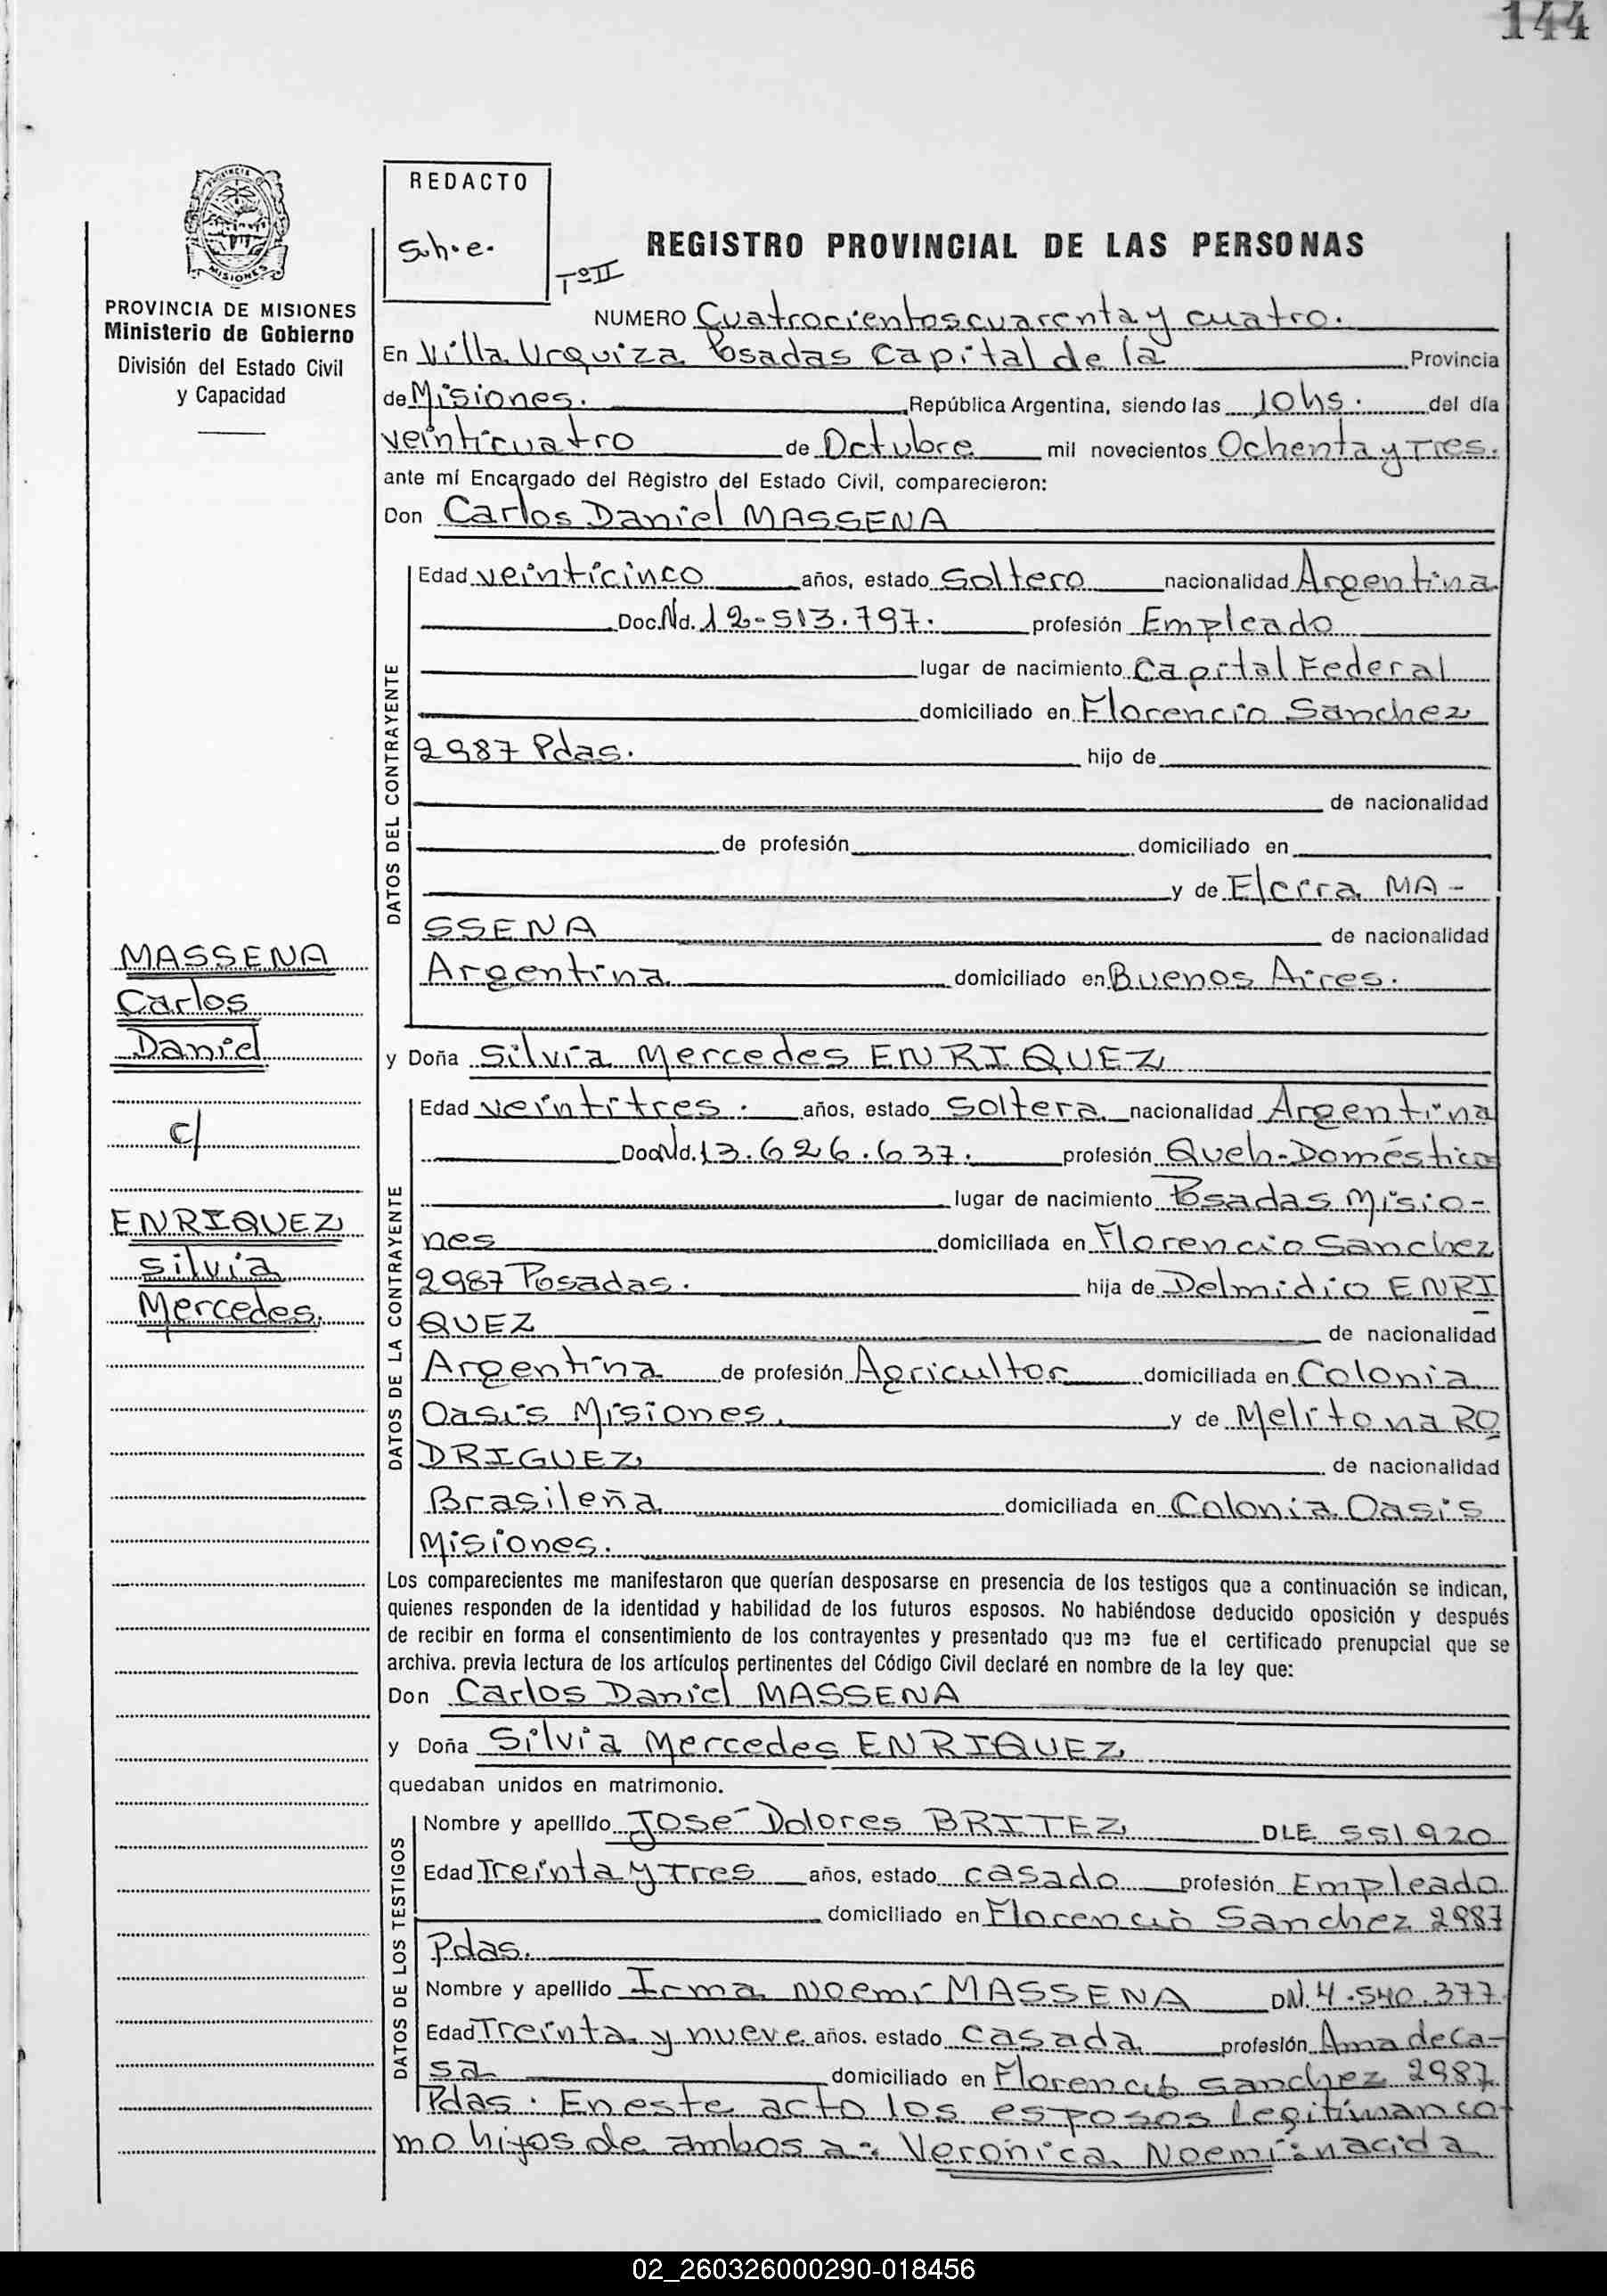 144
REDACTO
S.h.e.
TºII
REGISTRO PROVINCIAL DE LAS PERSONAS
MISIONES
PROVINCIA DE MISIONES
Ministerio de Gobierno
División del Estado Civil
y Capacidad
NUMERO Cuatrocientos cuarenta y cuatro.
En Villa Urquiza Posadas Capital de la Provincia
de Misiones. República Argentina, siendo las 10hs. del día
veinticuatro de Octubre mil novecientos Ochenta y Tres.
ante mí Encargado del Registro del Estado Civil, comparecieron:
Don Carlos Daniel MASSENA
DATOS DEL CONTRAYENTE
Edad veinticinco años, estado Soltero nacionalidad Argentina
Doc.Nd. 12-513.797. profesión Empleado
lugar de nacimiento Capital Federal
domiciliado en Florencio Sanchez
2987 Pdas. hijo de
de nacionalidad
de profesión domiciliado en
y de Elcira MA-
SSENA de nacionalidad
Argentina domiciliado en Buenos Aires.
MASSENA
Carlos
Daniel
c/
ENRIQUEZ
Silvia
Mercedes.
y Doña Silvia Mercedes ENRIQUEZ
DATOS DE LA CONTRAYENTE
Edad veintitres. años, estado Soltera nacionalidad Argentina
Doc.Nd. 13.626.637. profesión Queh-Domésticos
lugar de nacimiento Posadas Misio-
nes domiciliada en Florencio Sanchez
2987 Posadas. hija de Delmidio ENRI
QUEZ de nacionalidad
Argentina de profesión Agricultor domiciliada en Colonia
Oasis Misiones. y de Melitona RO
DRIGUEZ de nacionalidad
Brasileña domiciliada en Colonia Oasis
Misiones.
Los comparecientes me manifestaron que querían desposarse en presencia de los testigos que a continuación se indican,
quienes responden de la identidad y habilidad de los futuros esposos. No habiéndose deducido oposición y después
de recibir en forma el consentimiento de los contrayentes y presentado que me fue el certificado prenupcial que se
archiva. previa lectura de los artículos pertinentes del Código Civil declaré en nombre de la ley que:
Don Carlos Daniel MASSENA
y Doña Silvia Mercedes ENRIQUEZ
quedaban unidos en matrimonio.
DATOS DE LOS TESTIGOS
Nombre y apellido José Dolores BRITEZ DLE 551920
Edad Treinta y Tres años, estado casado profesión Empleado
domiciliado en Florencio Sanchez 2987
Pdas.
Nombre y apellido Irma Noemí MASSENA DN. 4.540.377
Edad Treinta y nueve años. estado casada profesión Ama de Ca-
sa domiciliado en Florencio Sanchez 2987
Pdas. En este acto los esposos Legitiman co-
mo hijos de ambos a: Veronica Noemí: nacida
02_260326000290-018456